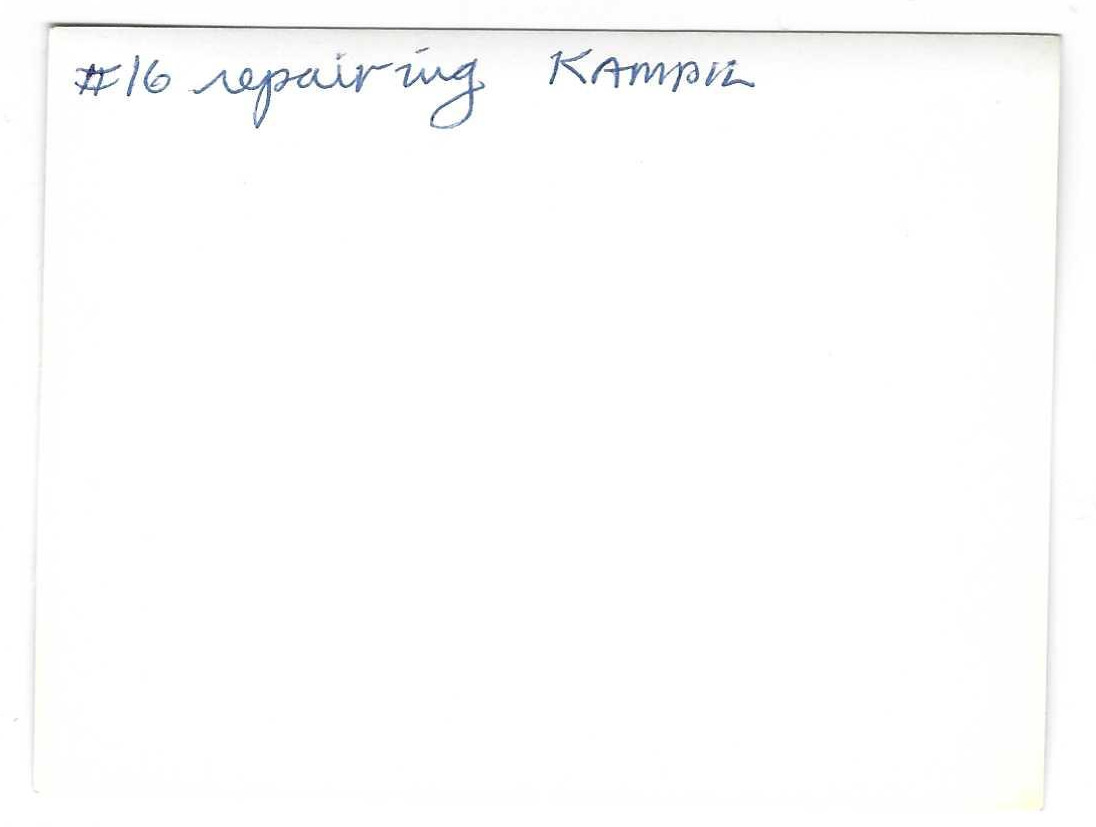 #16 repairing KAMPIL